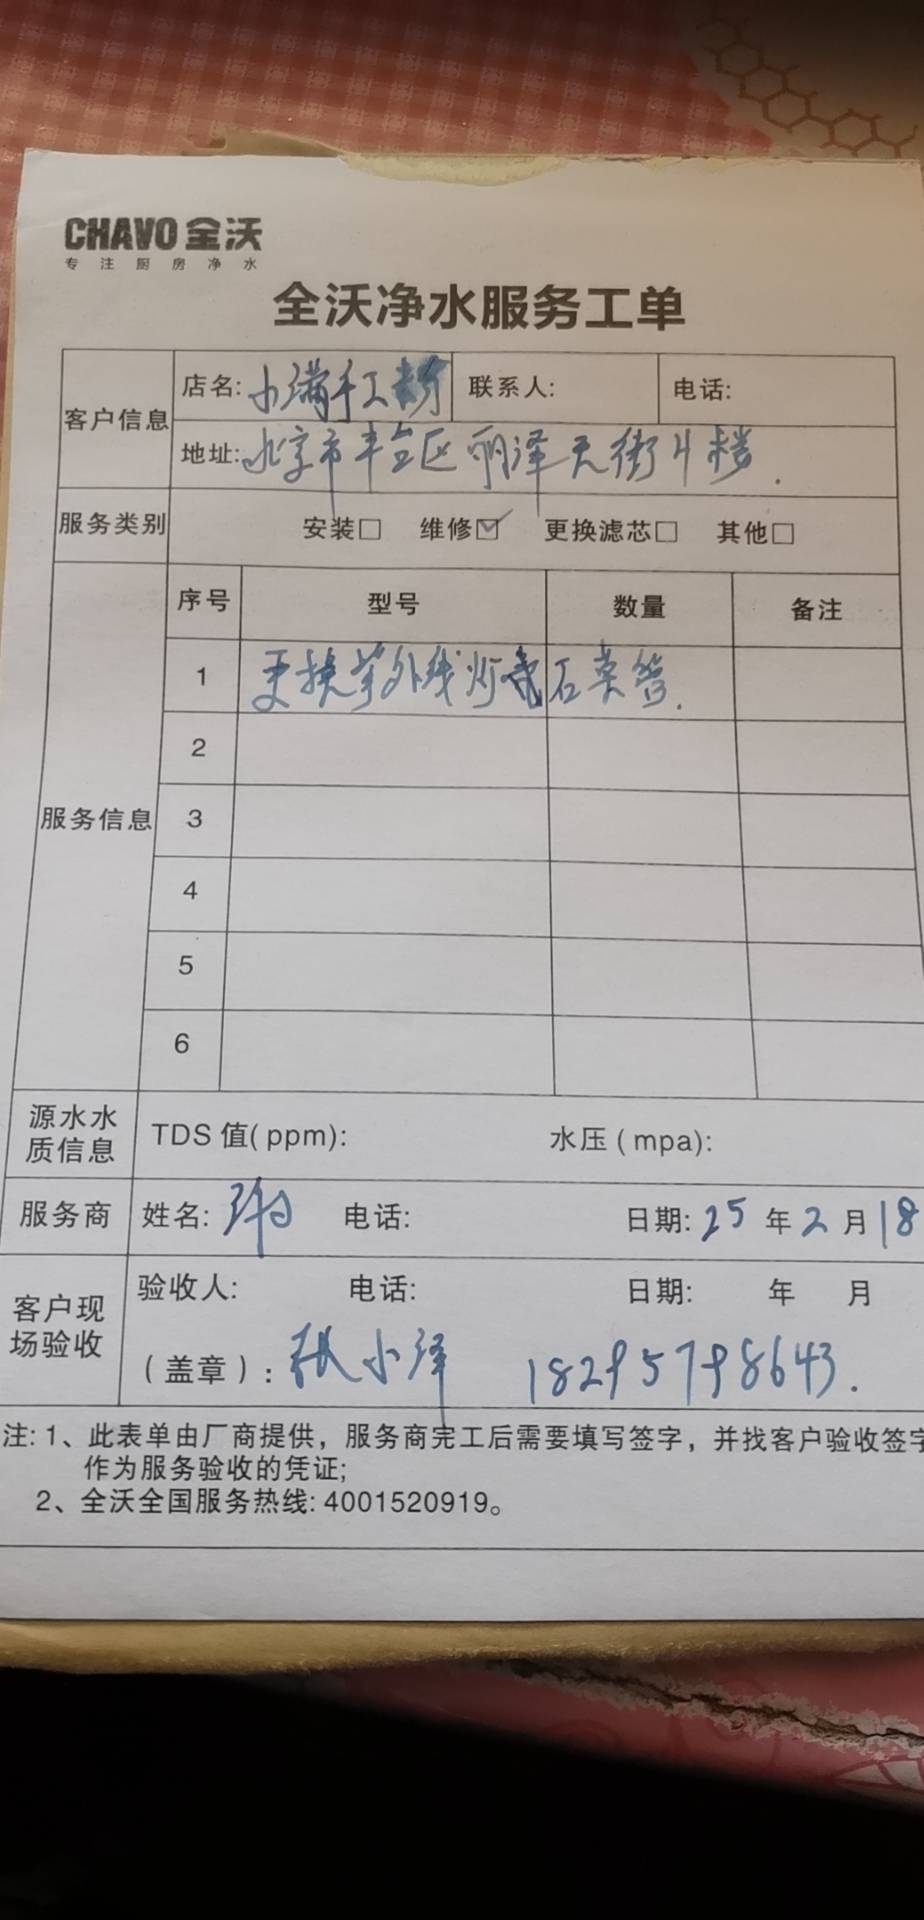 CHAVO 全沃
专注厨房净水
全沃净水服务工单
客户信息 店名: 小满手工粉 联系人: 电话:
地址: 北京市丰台区丽泽天街4楼.
服务类别 安装□ 维修☑ 更换滤芯□ 其他□
服务信息 序号 型号 数量 备注
1 更换紫外线灯 石英管.
2
3
4
5
6
源水水质信息 TDS 值(ppm): 水压(mpa):
服务商 姓名: 电话: 日期: 25 年 2 月 18
客户现场验收 验收人: 电话: 日期: 年 月
(盖章): 张小泽 18295798643.
注: 1、此表单由厂商提供，服务商完工后需要填写签字，并找客户验收签字
作为服务验收的凭证;
2、全沃全国服务热线: 4001520919。